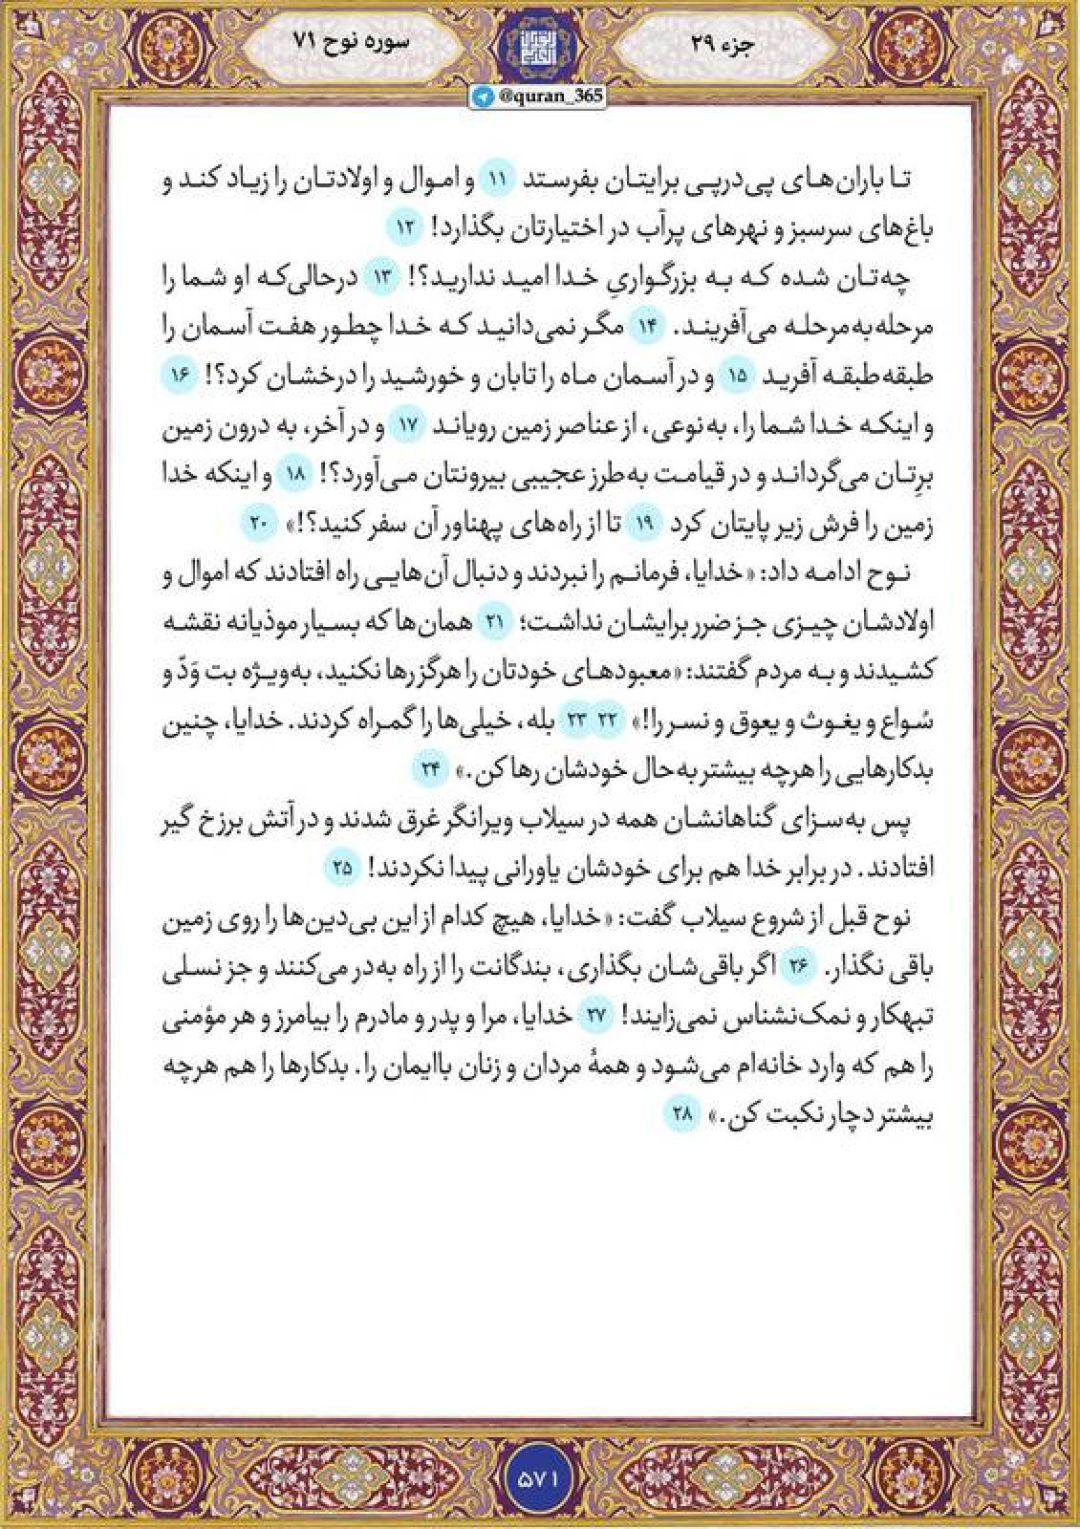 جزء ۲۹
سوره نوح ۷۱
@quran_365
تا باران‌های پی‌درپی برایتان بفرستد ۱۱ و اموال و اولادتان را زیاد کند و
باغ‌های سرسبز و نهرهای پرآب در اختیارتان بگذارد! ۱۲
چه‌تان شده که به بزرگواریِ خدا امید ندارید؟! ۱۳ درحالی‌که او شما را
مرحله‌به‌مرحله می‌آفریند. ۱۴ مگر نمی‌دانید که خدا چطور هفت آسمان را
طبقه‌طبقه آفرید ۱۵ و در آسمان ماه را تابان و خورشید را درخشان کرد؟! ۱۶
و اینکه خدا شما را، به‌نوعی، از عناصر زمین رویاند ۱۷ و در آخر، به درون زمین
برِتان می‌گرداند و در قیامت به‌طرز عجیبی بیرونتان می‌آورد؟! ۱۸ و اینکه خدا
زمین را فرش زیر پایتان کرد ۱۹ تا از راه‌های پهناور آن سفر کنید؟!» ۲۰
نوح ادامه داد: «خدایا، فرمانم را نبردند و دنبال آن‌هایی راه افتادند که اموال و
اولادشان چیزی جز ضرر برایشان نداشت؛ ۲۱ همان‌ها که بسیار موذیانه نقشه
کشیدند و به مردم گفتند: «معبودهای خودتان را هرگز رها نکنید، به‌ویژه بت وَدّ و
سُواع و یغوث و یعوق و نسر را!» ۲۲ ۲۳ بله، خیلی‌ها را گمراه کردند. خدایا، چنین
بدکارهایی را هرچه بیشتر به‌حال خودشان رها کن.» ۲۴
پس به‌سزای گناهانشان همه در سیلاب ویرانگر غرق شدند و در آتش برزخ گیر
افتادند. در برابر خدا هم برای خودشان یاورانی پیدا نکردند! ۲۵
نوح قبل از شروع سیلاب گفت: «خدایا، هیچ کدام از این بی‌دین‌ها را روی زمین
باقی نگذار. ۲۶ اگر باقی‌شان بگذاری، بندگانت را از راه به‌در می‌کنند و جز نسلی
تبهکار و نمک‌نشناس نمی‌زایند! ۲۷ خدایا، مرا و پدر و مادرم را بیامرز و هر مؤمنی
را هم که وارد خانه‌ام می‌شود و همهٔ مردان و زنان باایمان را. بدکارها را هم هرچه
بیشتر دچار نکبت کن.» ۲۸
۵۷۱